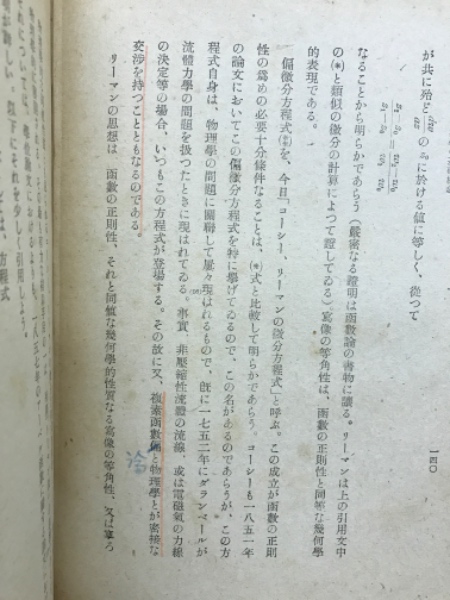 一四〇
が共に殆ど dw/dz の z₀ に於ける値に等しく、從つて
z₂ − z₀ / z₁ − z₀ = w₂ − w₀ / w₁ − w₀
なることから明らかであらう（嚴密なる證明は函數論の書物に讓る。リーマンは上の引用文中
の(*)と類似の微分の計算によつて證してゐる）寫像の等角性は、函數の正則性と同等な幾何學
的表現である。
偏微分方程式(※)を、今日「コーシー、リーマンの微分方程式」と呼ぶ。この成立が函數の正則
性の爲めの必要十分條件なることは、(*)式と比較して明らかであらう。コーシーも一八五一年
の論文においてこの偏微分方程式を特に擧げてゐるので、この名があるのであらうが、この方
程式自身は、物理學の問題に關聯して屢々現はれるもので、既に一七五二年にダランベールが
流體力學の問題を扱つたときに現はれてゐる。事實、非壓縮性流體の流線、或は電磁氣の力線
の決定等の場合、いつもこの方程式が登場する。その故に又、複素函數論と物理學とが密接な
交渉を持つこととともなるのである。
リーマンの思想は 函數の正則性、それと同値な幾何學的性質なる寫像の等角性、又は寧ろ